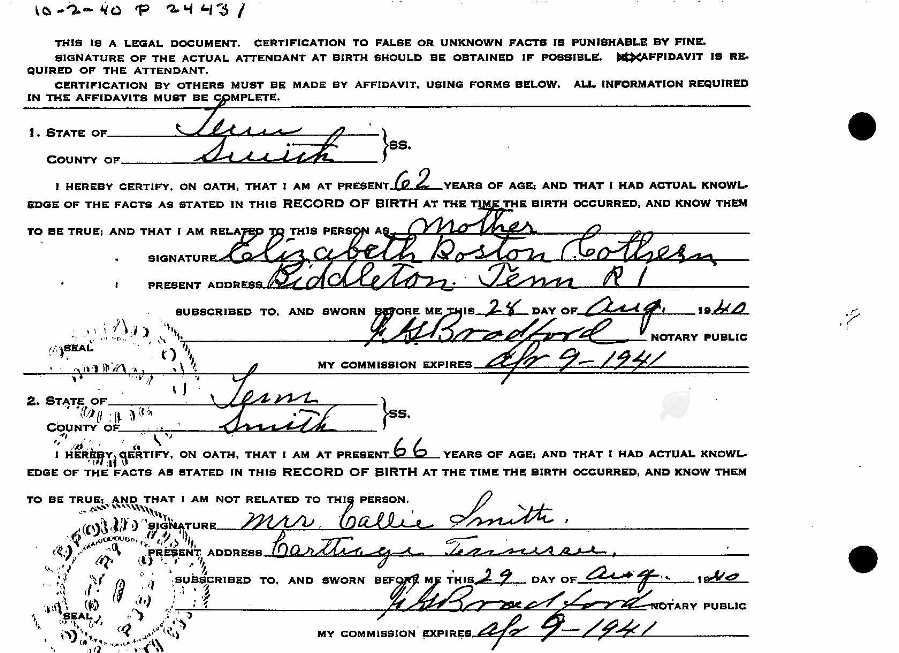 10-2-40 P 24431
THIS IS A LEGAL DOCUMENT. CERTIFICATION TO FALSE OR UNKNOWN FACTS IS PUNISHABLE BY FINE.
SIGNATURE OF THE ACTUAL ATTENDANT AT BIRTH SHOULD BE OBTAINED IF POSSIBLE. AFFIDAVIT IS RE-
QUIRED OF THE ATTENDANT.
CERTIFICATION BY OTHERS MUST BE MADE BY AFFIDAVIT, USING FORMS BELOW. ALL INFORMATION REQUIRED
IN THE AFFIDAVITS MUST BE COMPLETE.
1. STATE OF Tenn
COUNTY OF Smith } SS.
I HEREBY CERTIFY, ON OATH, THAT I AM AT PRESENT 62 YEARS OF AGE; AND THAT I HAD ACTUAL KNOWL-
EDGE OF THE FACTS AS STATED IN THIS RECORD OF BIRTH AT THE TIME THE BIRTH OCCURRED, AND KNOW THEM
TO BE TRUE; AND THAT I AM RELATED TO THIS PERSON AS Mother
SIGNATURE Elizabeth Boston Cothern
PRESENT ADDRESS Riddleton. Tenn R 1
SUBSCRIBED TO, AND SWORN BEFORE ME THIS 28 DAY OF Aug. 1940
Bradford NOTARY PUBLIC
SEAL
MY COMMISSION EXPIRES Apr 9-1941
2. STATE OF Tenn
COUNTY OF Smith } SS.
I HEREBY CERTIFY, ON OATH, THAT I AM AT PRESENT 66 YEARS OF AGE; AND THAT I HAD ACTUAL KNOWL-
EDGE OF THE FACTS AS STATED IN THIS RECORD OF BIRTH AT THE TIME THE BIRTH OCCURRED, AND KNOW THEM
TO BE TRUE; AND THAT I AM NOT RELATED TO THIS PERSON.
SIGNATURE Mrs. Callie Smith.
PRESENT ADDRESS Carthage Tennessee.
SUBSCRIBED TO, AND SWORN BEFORE ME THIS 29 DAY OF Aug. 1940
Bradford NOTARY PUBLIC
SEAL
MY COMMISSION EXPIRES Apr 9-1941